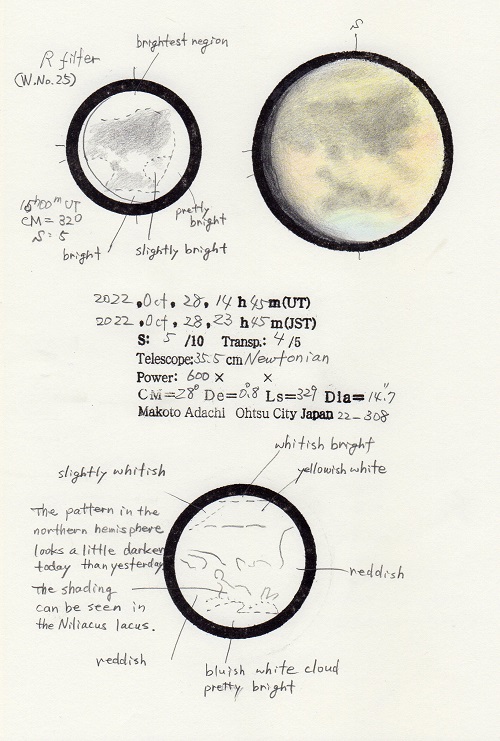 brightest region
R filter
(W.No.25)
S
15h00m UT
CM=320
S: 5
pretty
bright
bright
slightly bright
2022, Oct, 28, 14 h 45 m (UT)
2022, Oct, 28, 23 h 45 m (JST)
S: 5 /10 Transp.: 4 /5
Telescope: 35.5 cm Newtonian
Power: 600 × ×
CM=28° De=0.8° Ls=329 Dia=14.″7
Makoto Adachi Ohtsu City Japan 22-308
whitish bright
slightly whitish
yellowish white
The pattern in the
northern hemisphere
looks a little darker
today than yesterday.
The shading
can be seen in
the Niliacus lacus.
reddish
reddish
bluish white cloud
pretty bright